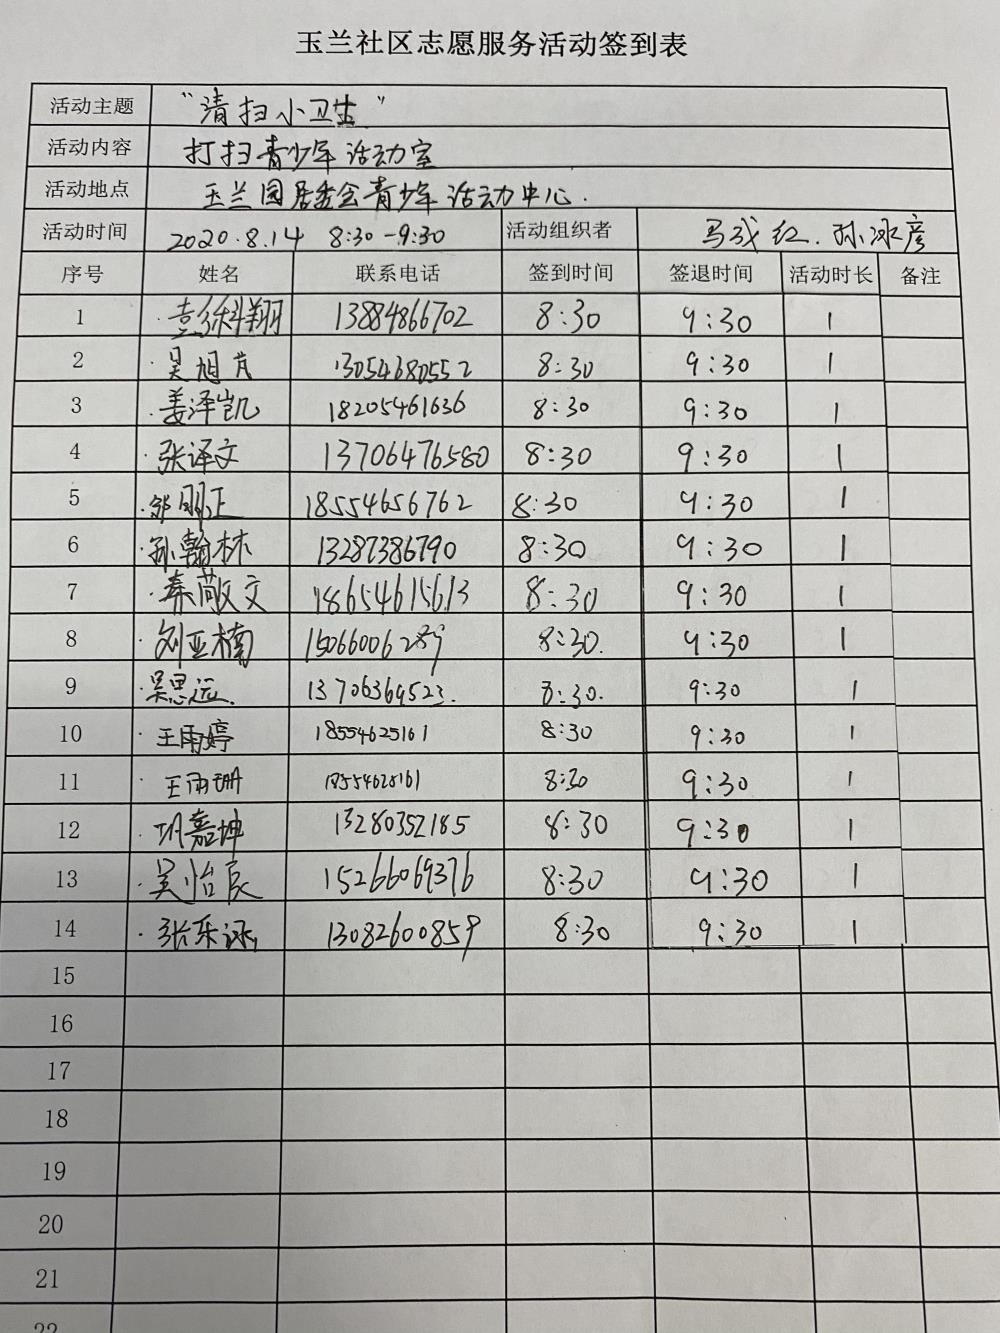 玉兰社区志愿服务活动签到表
活动主题 "清扫小卫生"
活动内容 打扫青少年活动室
活动地点 玉兰园居委会青少年活动中心.
活动时间 2020.8.14 8:30-9:30 活动组织者 马成红.孙冰彦
序号 姓名 联系电话 签到时间 签退时间 活动时长 备注
1 13884866702 8:30 9:30 1
2 吴旭芃 13054680552 8:30 9:30 1
3 姜泽凯 18205461636 8:30 9:30 1
4 张译文 13706476580 8:30 9:30 1
5 邹明正 18554656762 8:30 9:30 1
6 孙翰林 13287386790 8:30 9:30 1
7 秦敬文 18654615613 8:30 9:30 1
8 刘亚楠 8:30. 9:30 1
9 吴思远. 13706369523. 8:30. 9:30 1
10 王雨婷 18554625161 8:30 9:30 1
11 王雨珊 18554625161 8:30 9:30 1
12 巩嘉坤 13280352185 8:30 9:30 1
13 吴怡辰 15266069376 8:30 9:30 1
14 张乐泳 13082600859 8:30 9:30 1
15
16
17
18
19
20
21
22